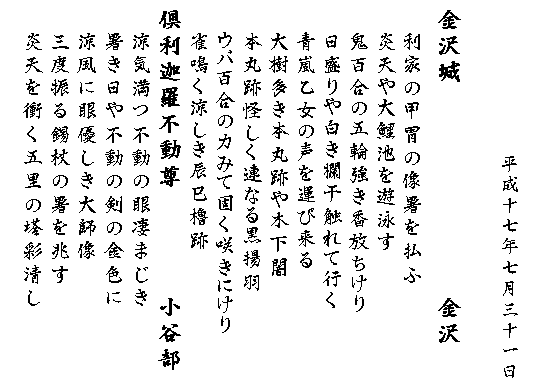 平成十七年七月三十一日
金沢城 金沢
利家の甲冑の像暑を払ふ
炎天や大鯉池を遊泳す
鬼百合の五輪強き香放ちけり
日盛りや白き欄干触れて行く
青嵐乙女の声を運び来る
大樹多き本丸跡や木下闇
本丸跡怪しく連なる黒揚羽
ウバ百合の力みて固く咲きにけり
雀鳴く涼しき辰巳櫓跡
倶利迦羅不動尊 小谷部
涼気満つ不動の眼凄まじき
暑き日や不動の剣の金色に
涼風に眼優しき大師像
三度振る錫杖の暑を兆す
炎天を衝く五里の塔彩清し